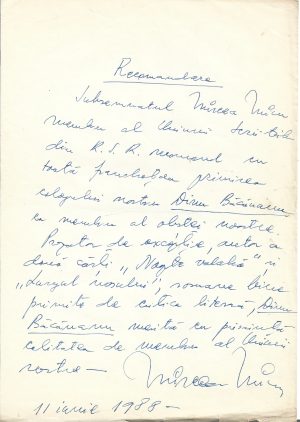 Recomandare
Subsemnatul Mircea Micu
membru al Uniunii Scriitorilor
din R.S.R. recomand cu
toată primirea
colegului nostru Dinu Băcăuanu
ca membru al obștei noastre.
Prozator de excepție, autor a
două cărți „Nopte valabilă", și
„Largul nosului", romane bine
primite de critica literară, Dinu
Băcăuanu merită cu prisosință
calitatea de membru al Uniunii
nostre —
Mircea Micu
11 iunie 1988 —